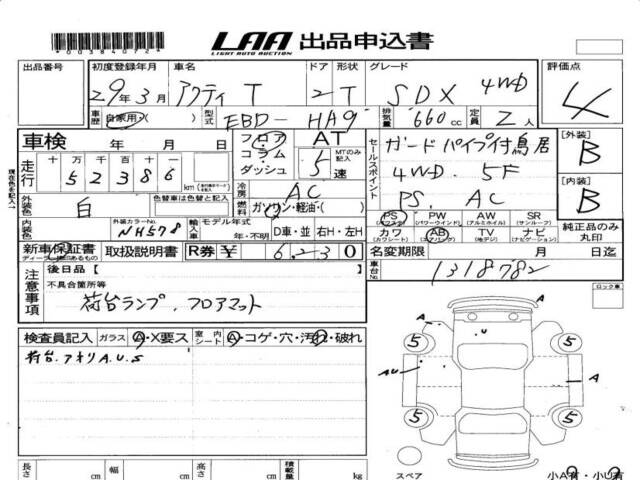 *0038407 2*
LAA 出品申込書
LIGHT AUTO AUCTION
出品番号 初度登録年月 車名 ドア 形状 グレード 評価点
29年3月 アクティ T 2 T SDX 4WD 4
車歴 自家用・( ) 型式 EBD-HA9 排気量 660cc 定員 2人
車検 フロア コラム ダッシュ AT 5速 MTのみ記入 セールスポイント ガードパイプ付鳥居 [外装] B
走行 十万千百十一 52386 km
4WD. 5F
冷房 AC PS. AC [内装] B
外装色 白 色替車は色替と記入 燃料 ガソリン・軽油・( )
内装色 外装カラーNo. NH578 輸入車 モデル年式 年・不明 D車・並 右H・左H
PS PW AW SR
(パワステ) (パワーウインド) (アルミホイル) (サンルーフ)
カワ AB TV ナビ 純正品のみ丸印
(カワシート) (エアバッグ) (地デジ) (ナビゲーション)
新車保証書 取扱説明書 R券 ¥ 6,230 名変期限 月 日迄
注意事項 後日品[ ] 車台No. 1318782
不具合箇所等
荷台ランプ.フロアマット
ロック車
検査員記入 ガラス A・X要ス 室内シート A・コゲ・穴・汚れ・破れ
荷台.アオリA.U.S
A
U
5 5
AU A
5 5
A
長さ cm 幅 cm 高さ cm 積載量 kg スペア 小A有・小U有